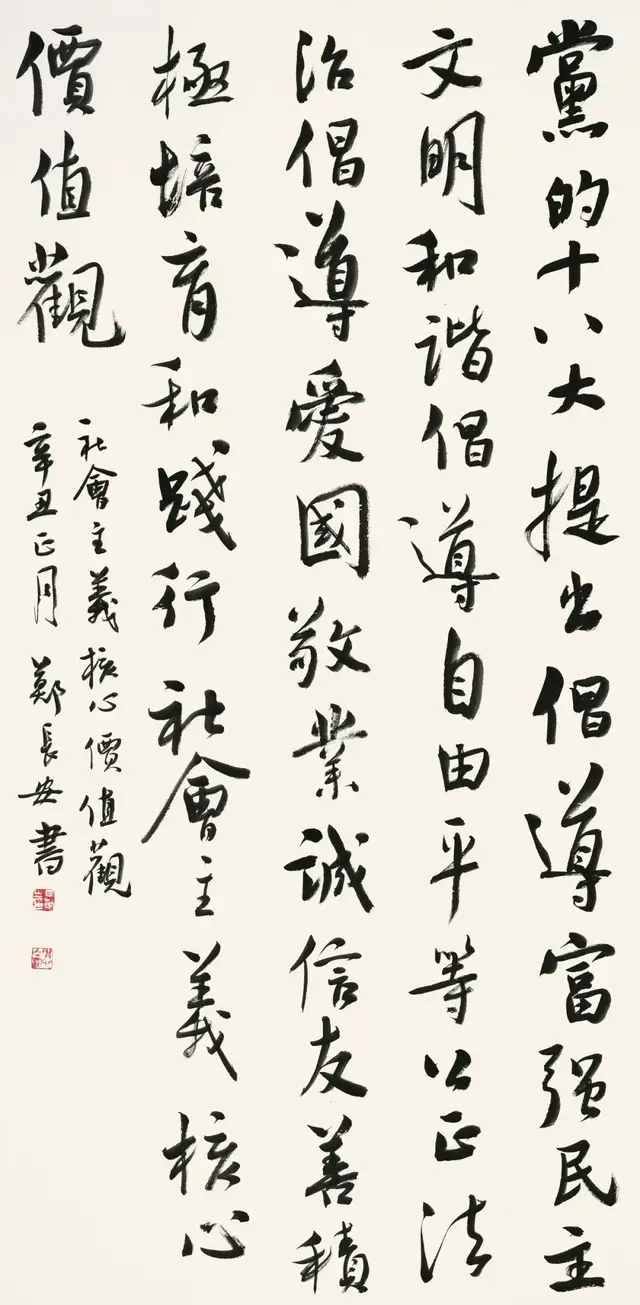 黨的十八大提出倡導富强民主
文明和諧倡導自由平等公正法
治倡導愛國敬業誠信友善積
極培育和踐行社會主義核心
價值觀
社會主義核心價值觀
辛丑正月鄭長安書